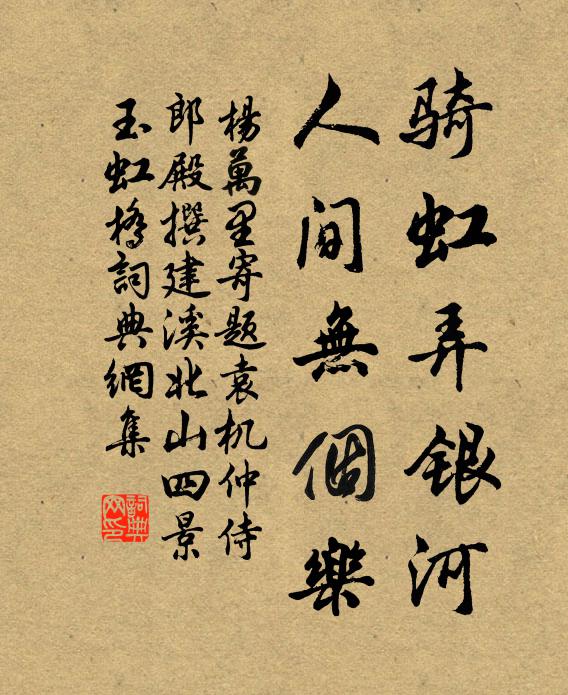 骑虹弄银河
人间無個樂
楊萬里寄题袁机仲侍
郎殿撰建溪北山四景
玉虹橋詞典網集
詞典
网印